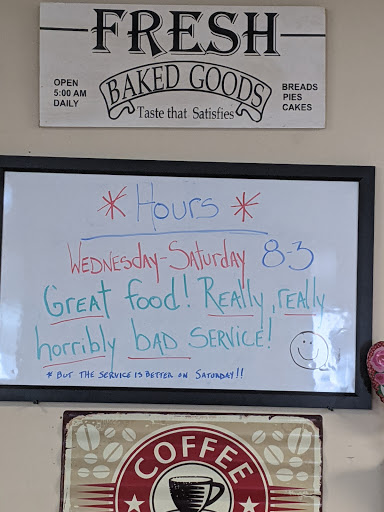 FRESH
BAKED GOODS
Taste that Satisfies
OPEN
5:00 AM
DAILY
BREADS
PIES
CAKES
* Hours *
WEDNESDAY-SATURDAY 8-3
Great food! REALLY, really
horribly BAD SERVICE!
* BUT THE SERVICE IS BETTER ON SATURDAY!!
COFFEE